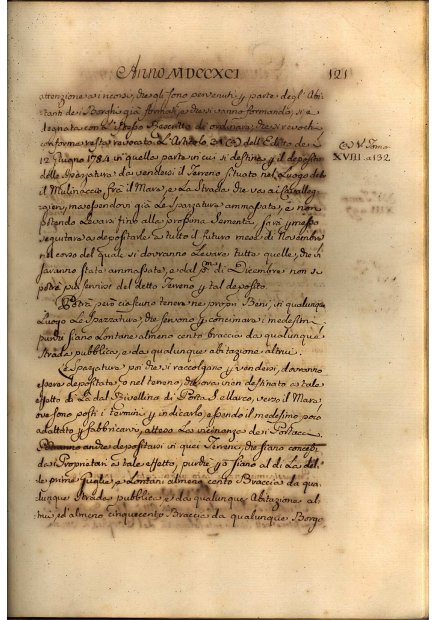 Anno MDCCXCI
121
attenzione a
degl' Abi-
tanti de i Borghi già formati, e che si vanno formando, si è
degnata con L' stesso Rescritto di ordinare, che si revochi
conforme resta revocato L' Articolo dell' Editto de
12 Giugno 1784 in quella parte in cui si destina p. il deposito
delle Spazzature da vendersi il Terreno situato nel Luogo del
il Mulinaccio frà il Mare, e La Strada che va a i Cavalleg-
geri, ma essendovi già Le Spazzature ammassate, e non
potendo Levarsi fino alla prossima Sementa, sarà
seguitare a depositarle a tutto il futuro mese di Novembre
nel corso del quale si dovranno Levare tutte quelle, che vi
saranno state ammassate, e dal p.mo di Dicembre non si
potrà più servirsi del detto Terreno p. tal deposito.
Potrà però ciascuno tenere ne proprj Beni, in qualunque
Luogo Le Spazzature, che servono p. concimare i medesimi,
purche siano Lontane almeno cento braccia da qualunque
Strada pubblica, e da qualunque abitazione altrui.
Le Spazzature poi che si raccolgono p. vendersi, dovranno
essere depositate o nel terreno, che ora vien destinato a tale
effetto di La dal Rivellino di Porta S. Marco, verso il Mare
ove sono posti i termini p. indicarlo, essendo il medesimo poco
adattato p. fabbricarvi, attesa La vicinanza de i
Potranno anche depositarsi in quei Terreni, che siano concedu-
ti da Proprietarj a tale effetto, purche p. siano al di La del-
le prime Guglie, e Lontani almeno cento Braccia da qua-
lunque Strada pubblica e da qualunque Abitazione al-
trui ed almeno cinquecento Braccia da qualunque Borgo
XVIII. a 132